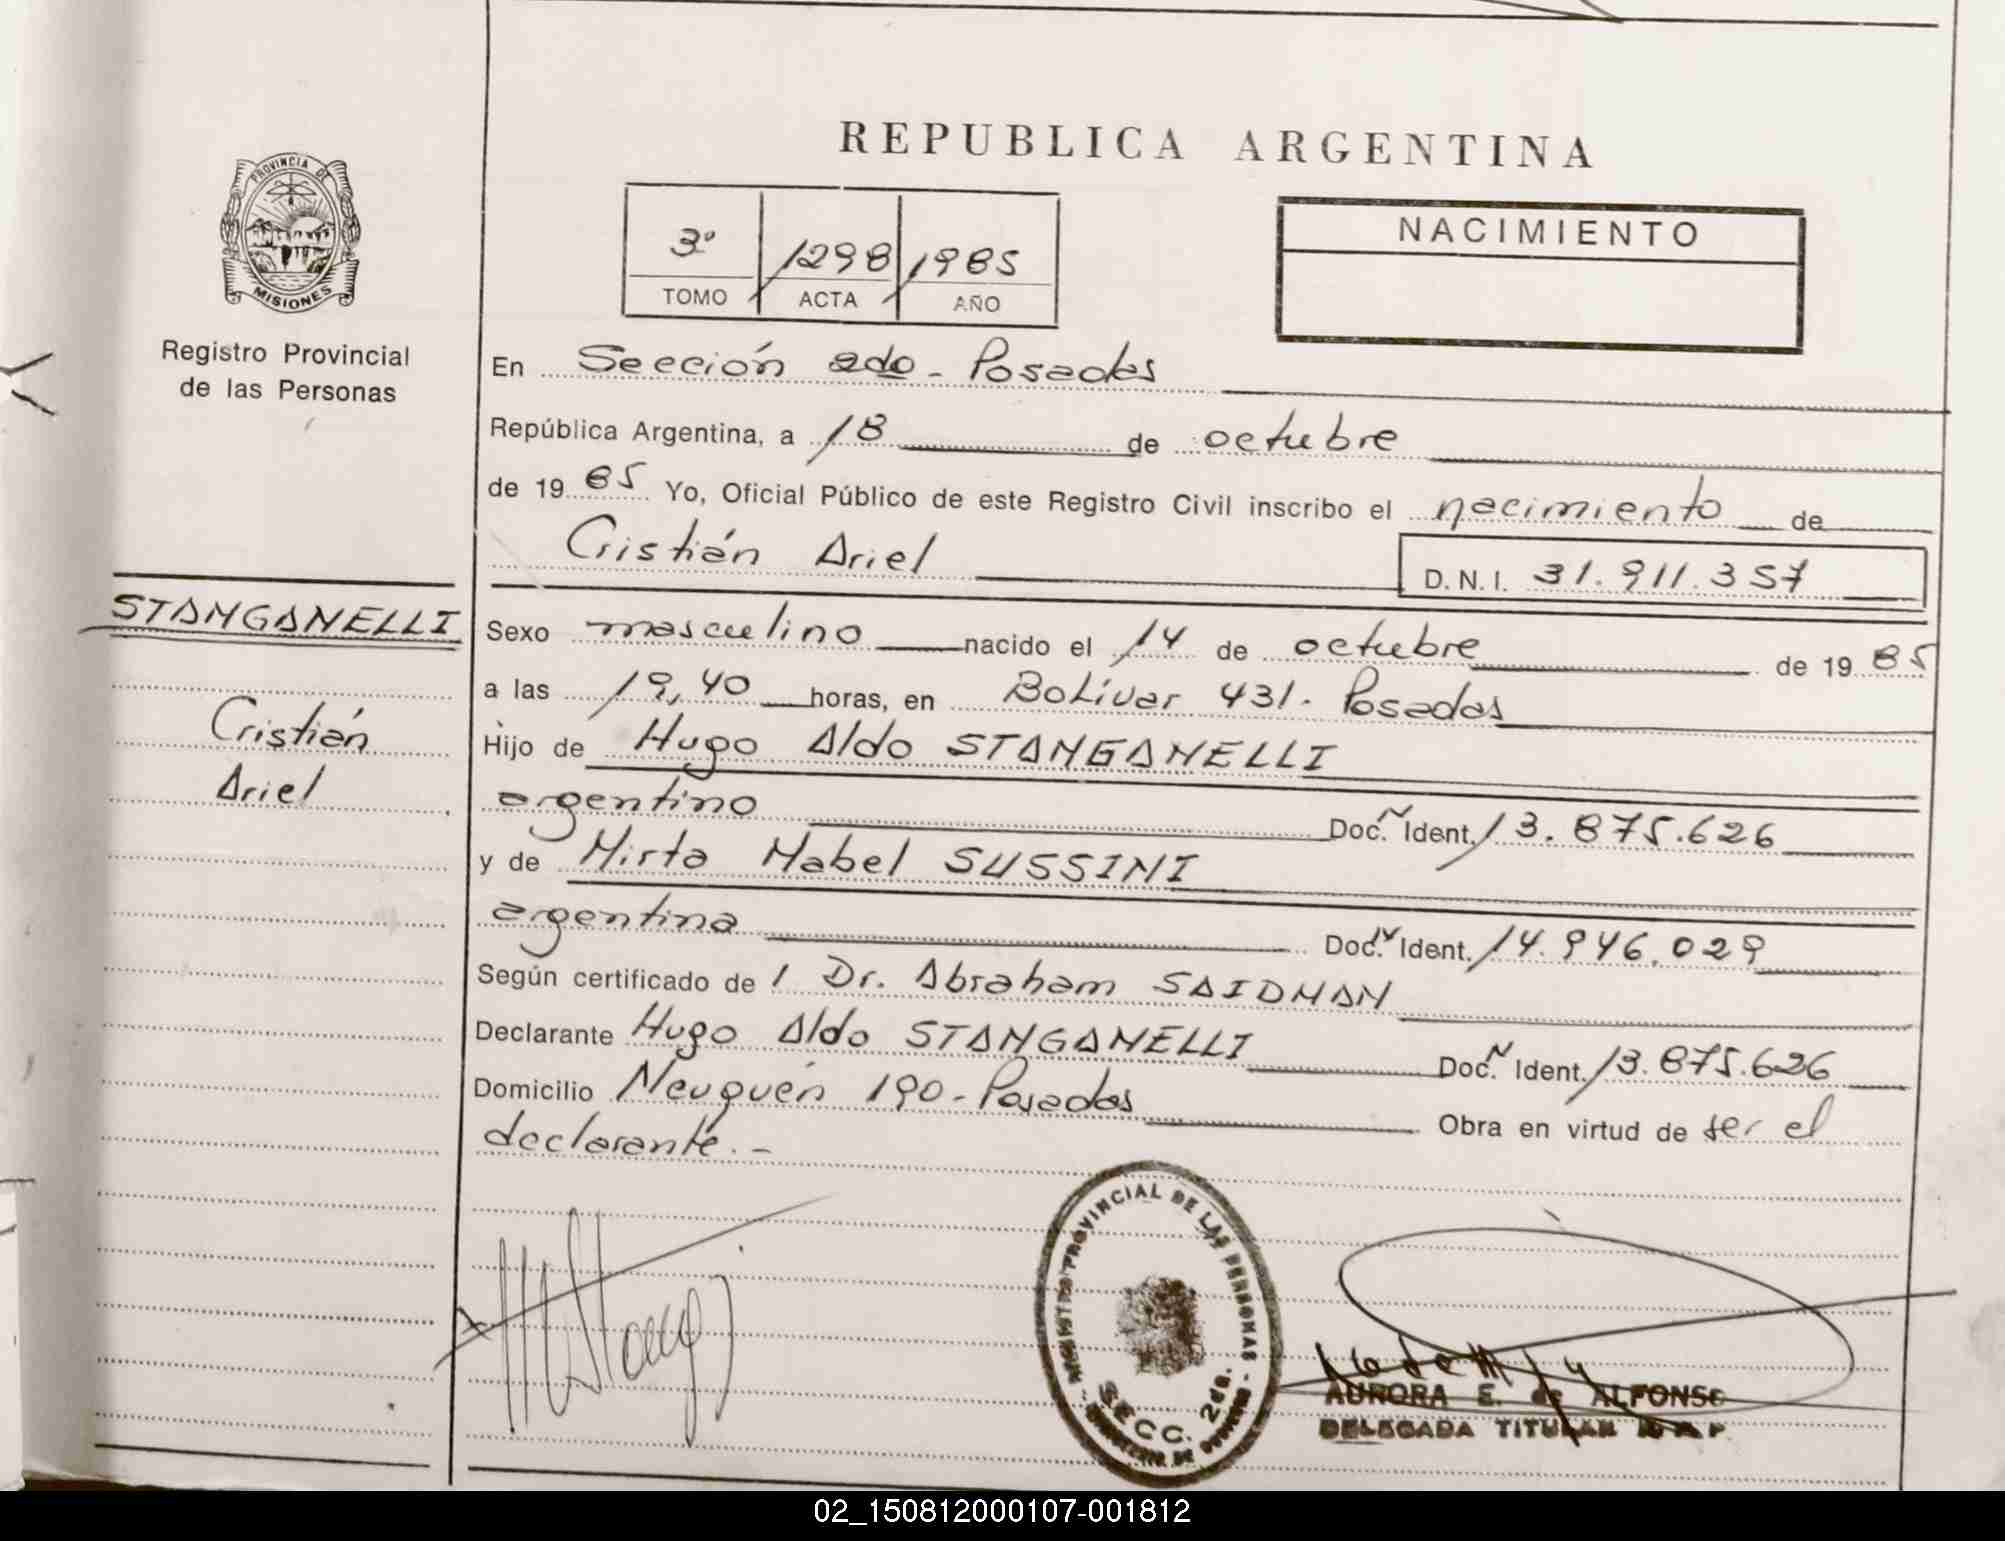 REPUBLICA ARGENTINA
PROVINCIA DE
MISIONES
Registro Provincial
de las Personas
3º 1298 1985
TOMO ACTA AÑO
NACIMIENTO
En Sección 2da - Posadas
República Argentina, a 18 de octubre
de 1985 Yo, Oficial Público de este Registro Civil inscribo el nacimiento de
Cristián Ariel D.N.I. 31.911.357
STANGANELLI
Cristián
Ariel
Sexo masculino nacido el 14 de octubre de 1985
a las 19,40 horas, en Bolívar 431. Posadas
Hijo de Hugo Aldo STANGANELLI
argentino Doc. N Ident. 13.875.626
y de Mirta Mabel SUSSINI
argentina Doc. N Ident. 14.946.029
Según certificado de l Dr. Abraham SAIDMAN
Declarante Hugo Aldo STANGANELLI Doc. N Ident. 13.875.626
Domicilio Neuquén 190 - Posadas Obra en virtud de ser el
declarante.-
REGISTRO PROVINCIAL DE LAS PERSONAS
SECC. 2da.
AURORA E. de ALFONSO
DELEGADA TITULAR
02_150812000107-001812